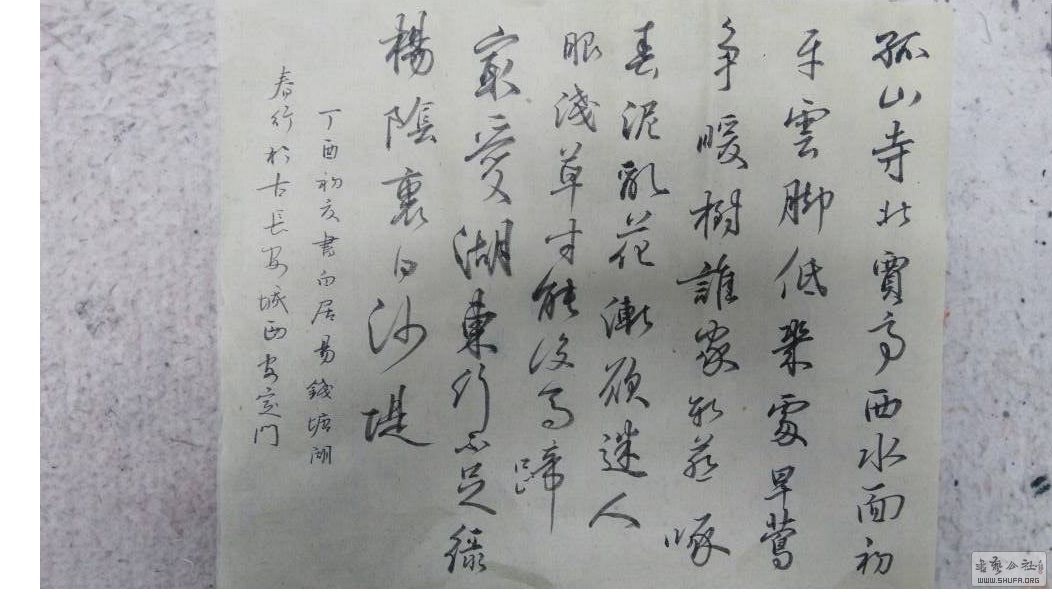 孤山寺北賈亭西水面初
平雲脚低幾處早鶯
争暖樹誰家新燕啄
春泥亂花漸欲迷人
眼淺草才能没馬蹄
最愛湖東行不足綠
楊陰裏白沙堤
丁酉初夏書白居易錢塘湖
春行於古長安城西安定門
书艺公社
WWW.SHUFA.ORG